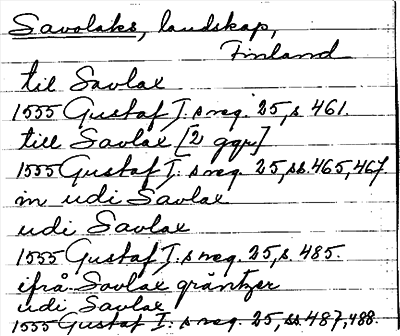 Savolaks, landskap,
Finland
til Savlax
1555 Gustaf I:s reg. 25, s. 461.
till Savlax [2 ggr]
1555 Gustaf I:s reg. 25, ss. 465, 467.
in udi Savlax
udi Savlax
1555 Gustaf I:s reg. 25, s. 485.
ifrå Savlax gräntzer
udi Savlax
1555 Gustaf I:s reg. 25, ss. 487, 488.